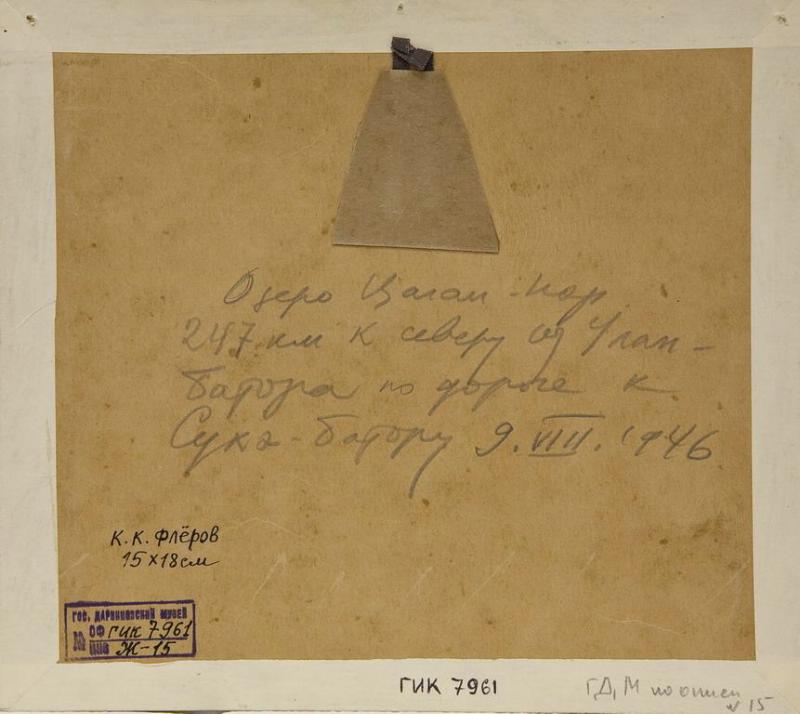 Озеро Цаган-Нор
247 км к северу от Улан-
Батора по дороге к
Сухэ-Батору 9.VIII.1946
К.К. Флёров
15х18см
ГОС. ДАРВИНОВСКИЙ МУЗЕЙ
№ ОФ ГИК 7961
Ж-15
ГИК 7961
ГДМ по описи
№ 15